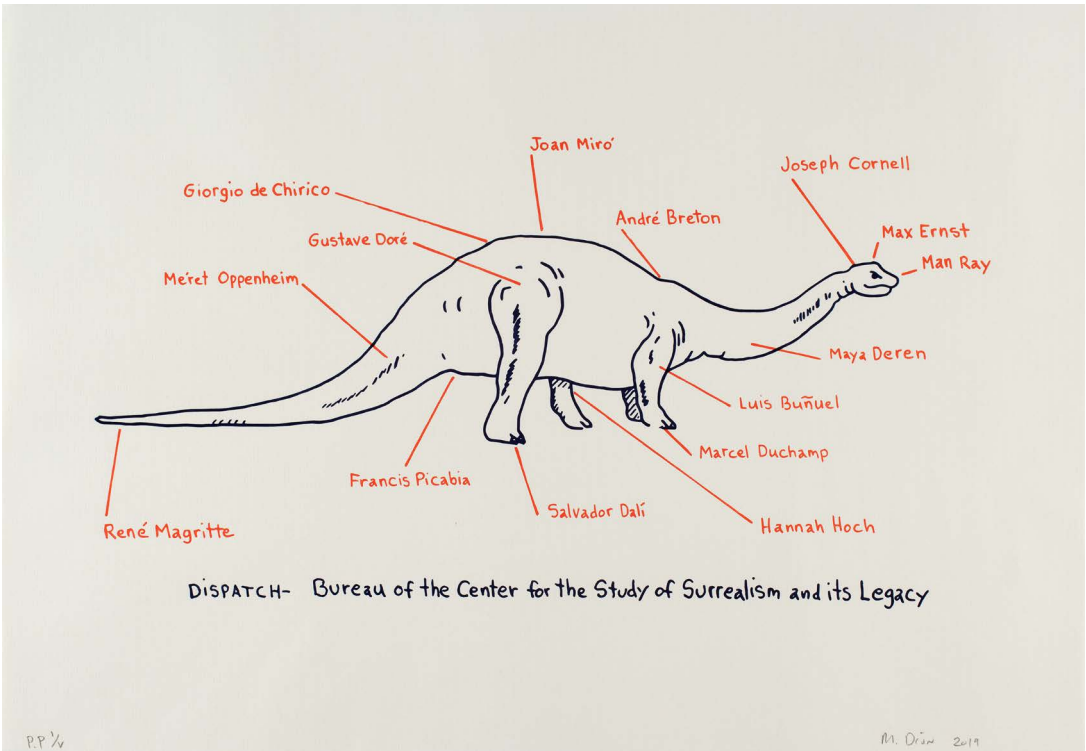 Joan Miró
Joseph Cornell
Giorgio de Chirico
André Breton
Gustave Doré
Max Ernst
Man Ray
Méret Oppenheim
Maya Deren
Luis Buñuel
Marcel Duchamp
Francis Picabia
Salvador Dalí
Hannah Hoch
René Magritte
DISPATCH- Bureau of the Center for the Study of Surrealism and its Legacy
P.P 1/V
M. Dion 2019